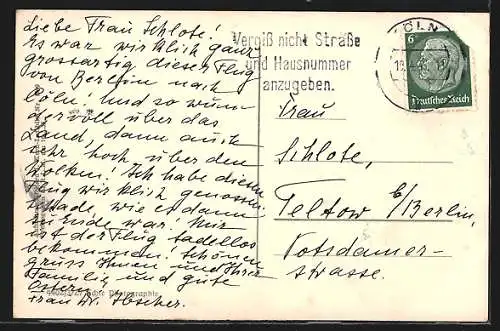 Liebe Frau Schlote!
Es war wirklich ganz
grossartig dieser Flug
von Berlin nach
Cöln! und so wun-
dervoll über das
Land, dann auch
sehr hoch über den
Wolken! Ich habe diesen
Flug wirklich genossen
schade, wie es dann
zu Ende war! Mir
ist der Flug tadellos
bekommen! Schönen
gruss Ihnen und Ihrer
Familie und gute
Ostern
Frau Dr.
Echte Photographie
Vergiß nicht Straße
und Hausnummer
anzugeben.
KÖLN
6
Deutsches Reich
Frau
Schlote,
Teltow b/Berlin,
Potsdamer-
strasse.